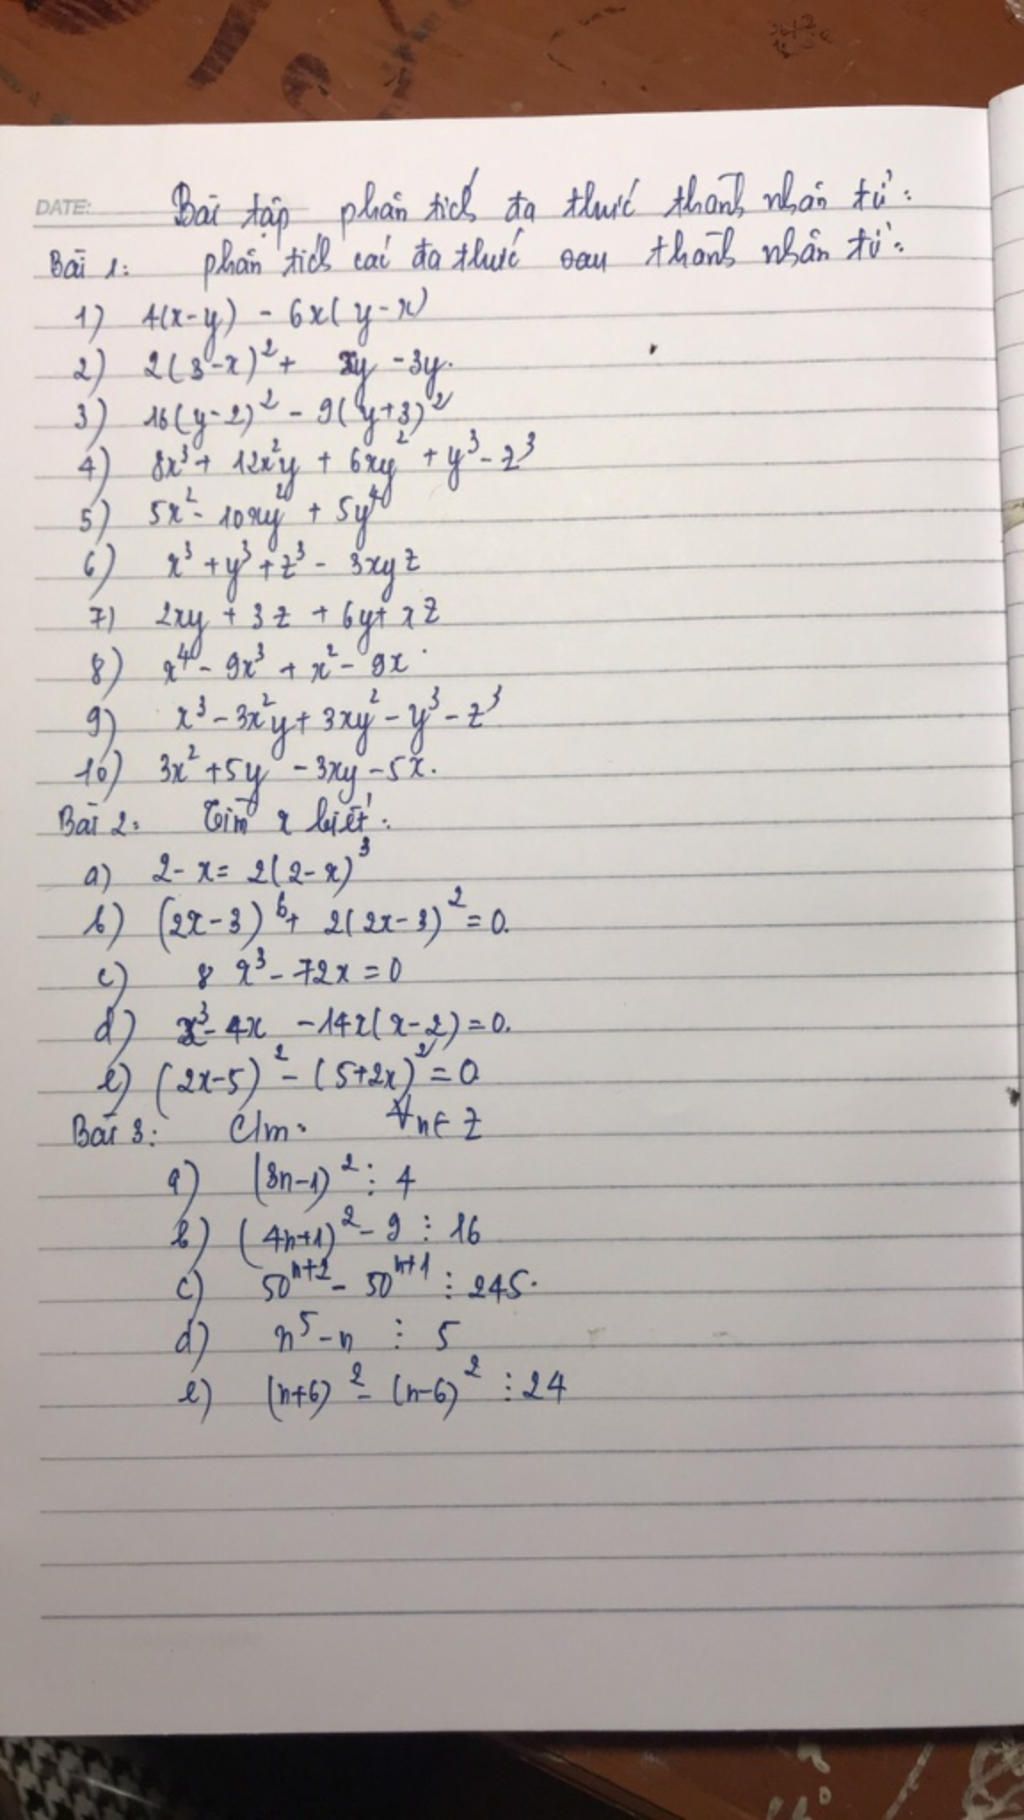 DATE:
Bài tập phân tích đa thức thành nhân tử:
Bài 1: phân tích các đa thức sau thành nhân tử:
1) 4(x-y) - 6x(y-x)
2) 2(3-x)² + xy - 3y.
3) 16(y-2)² - 9(y+3)²
4) 8x³ + 12x²y + 6xy² + y³ - z³
5) 5x² - 10xy² + 5y⁴
6) x³ + y³ + z³ - 3xyz
7) 2xy + 3z + 6y + xz
8) x⁴ - 9x³ + x² - 9x
9) x³ - 3x²y + 3xy² - y³ - z³
10) 3x² + 5y - 3xy - 5x.
Bài 2: Tìm x biết:
a) 2 - x = 2(2-x)³
b) (2x-3)⁶ + 2(2x-3)² = 0.
c) 8x³ - 72x = 0
d) x³ - 4x - 14x(x-2) = 0.
e) (2x-5)² - (5+2x)² = 0
Bài 3: C/m: ∀n∈Z
a) (3n-1)² ⋮ 4
b) (4n+1)² - 9 ⋮ 16
c) 50ⁿ⁺² - 50ⁿ⁺¹ ⋮ 245.
d) n⁵ - n ⋮ 5
e) (n+6)² - (n-6)² ⋮ 24